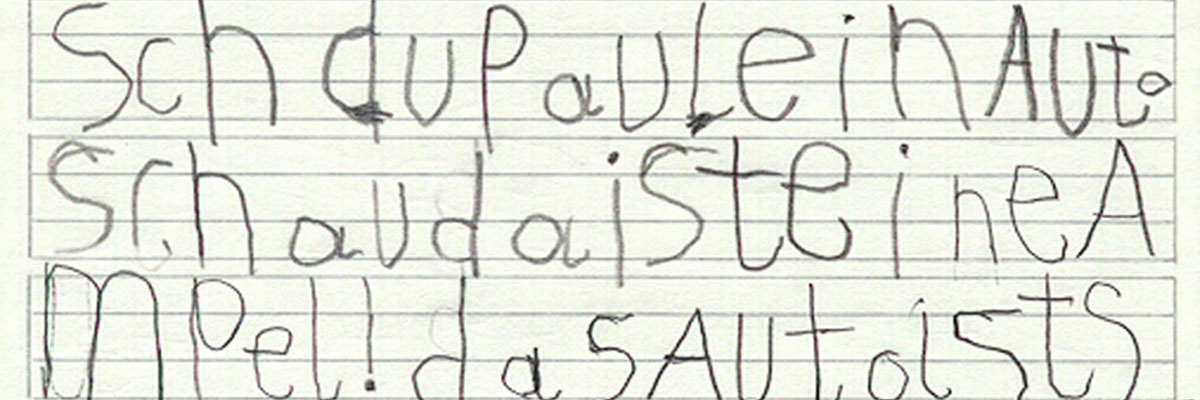 Sch dUPaULein AUto
SchaUdaiSteineA
MPel! dasAUtoistS